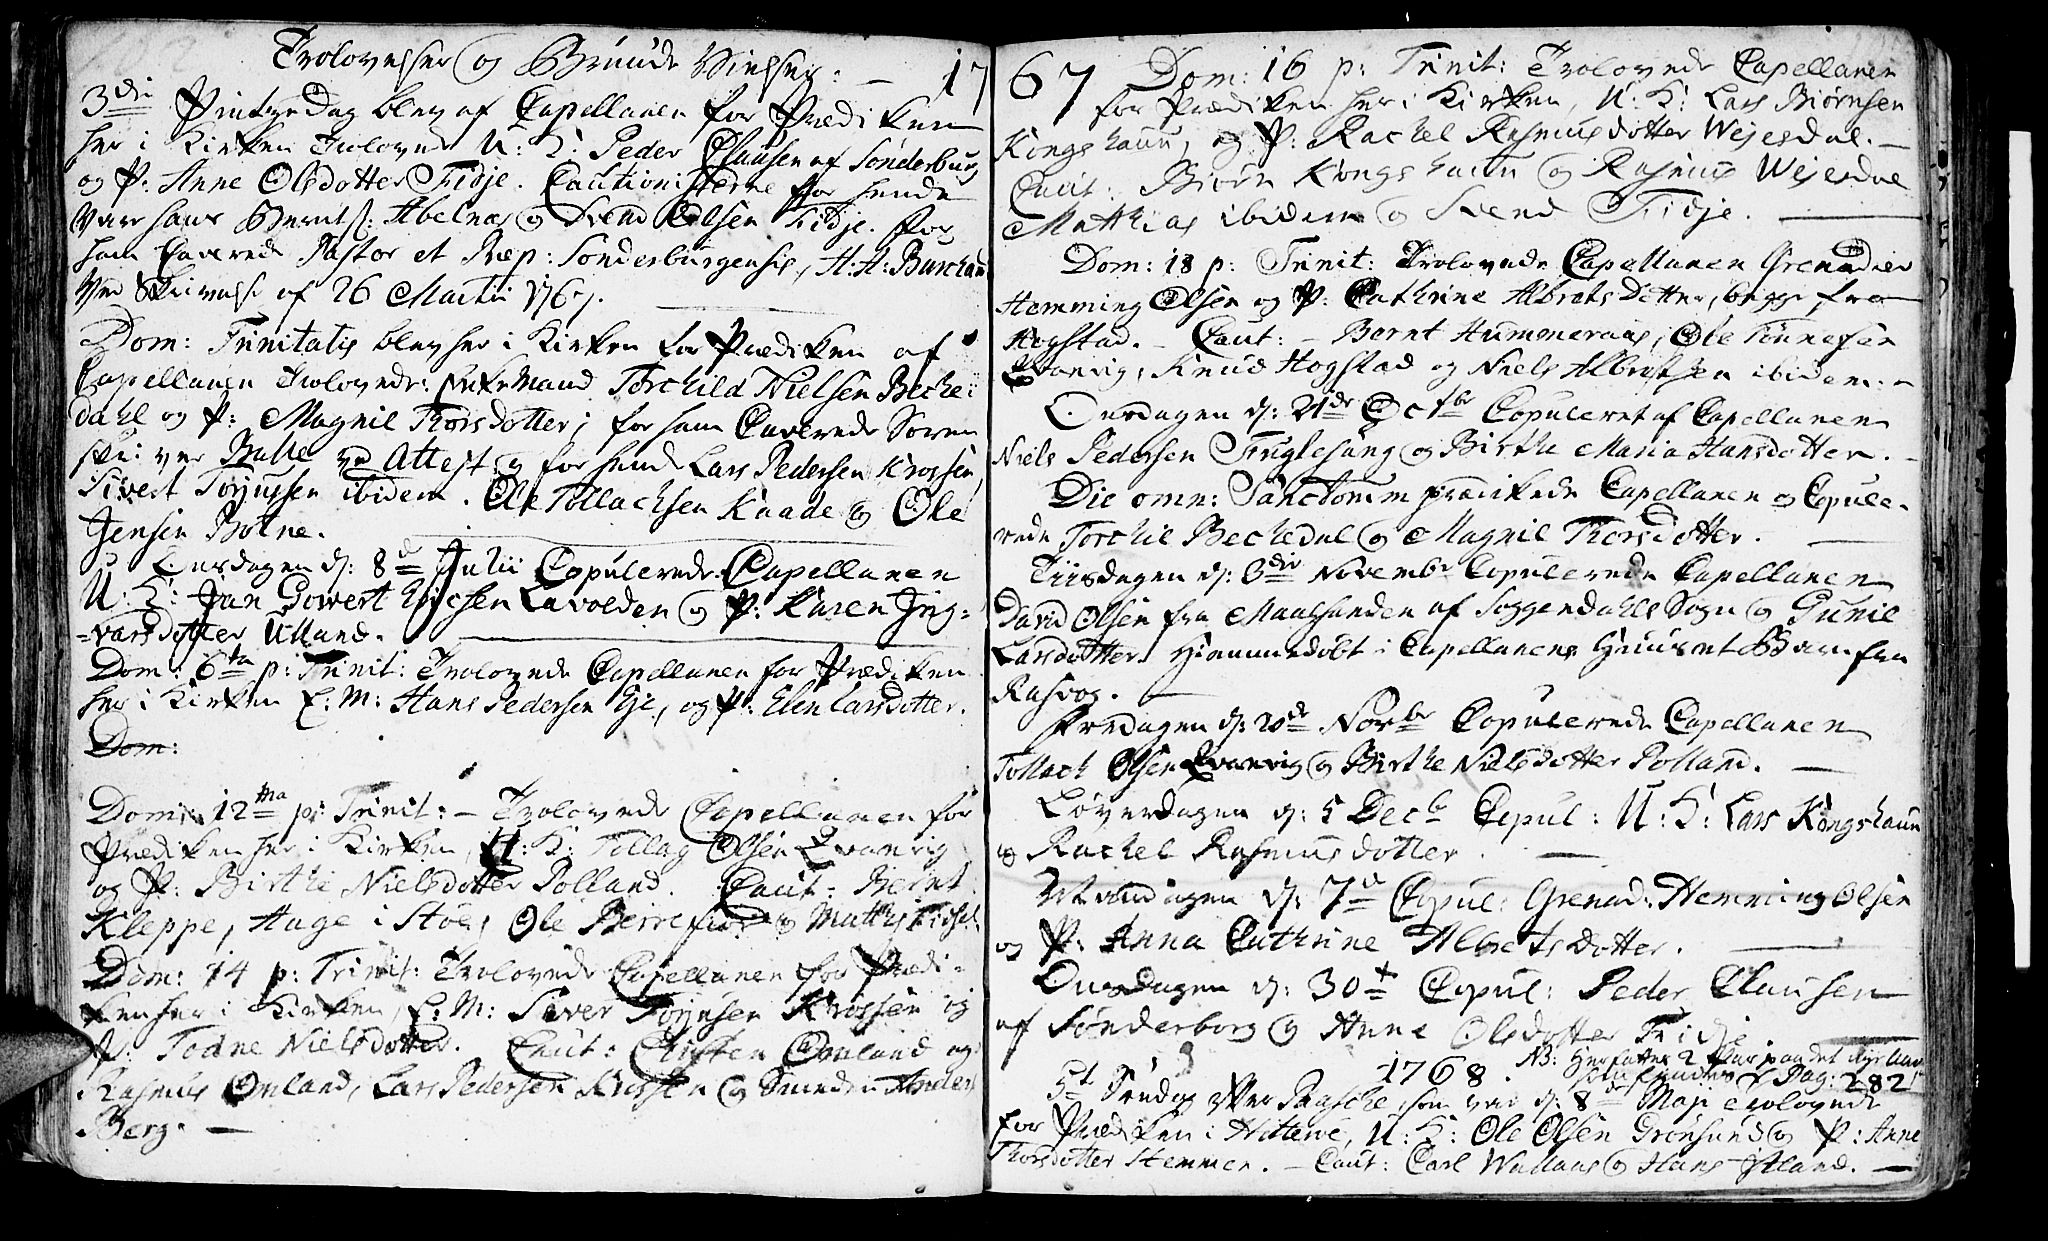 Trolovelser og Bruude Vielser: — 17
3die Pintzedag blev af Capellanen for Prædiken
her i Kirken Trolovede U: K: Peder Clausen af Sønderburg
og P: Anne Olsdotter Fidje. Cautionisterne for hende
var hans Berntss: Abelnæs og Svend Olsen Fidje. For
ham Caverede Pastor et Præp: Sonderburgensis, H: H: Burchan
ved Skrivelse af 26 Martii 1767.
Dom: Trinitatis blev her i Kirken for Prædiken af
Capellanen Trolovede: Enke Mand Torchild Nielsen Beche-
dahl og P: Magnil Thorsdotter; for ham Caverede Soren
skriver Balle ved Attest og for hende Lars Pedersen Krossen,
Sivert Torjussen ibidem. Ole Tollachsen Kaade og Ole
Jensen Botne.
Onsdagen d: 8de Julii Copulerede Capellanen
U: K: Jan Gowert Erichsen Lavolden og P: Karen Ing-
-varsdotter Ulland.
Dom: 6ta p: Trinit: Trolovede Capellanen for Prædiken
her i Kirken E: M: Hans Pedersen Eje, og P: Elen Larsdotter.
Dom:
Dom: 12ma p: Trinit: — Trolovede Capellanen for
Prædiken her i Kirken, U: K: Tollag Olsen Qvanvig
og P: Birthe Nielsdotter Polland. Caut: Bernt
Kleppe, Aage i Stoe, Ole Berrefior og Matthis Fidsel:
Dom: 14 p: Trinit: Trolovede Capellanen for Prædi-
ken her i Kirken, E: M: Siver Torjusen Krossen og
P: Todne Nielsdotter. Caut: Christen Omland og
Rasmus Omland, Lars Pedersen Krossen og Smeden Anders
Berg. —
67 Dom: 16 p: Trinit: Trolovede Capellanen
for Prædiken her i Kirken, U: K: Lars Biørnsen
Kongshaun, og P: Rachel Rasmusdotter Wejesdal. —
Caut: Biørn Kongshaun og Rasmus Wejesdal
Matthias ibidem og Svend Fidje.
Dom: 18 p: Trinit: Trolovede Capellanen Grenadier
Hemming Olsen og P: Cathrine Albretsdotter, begge fra
Hogstad. — Caut: — Bernt Hummeraas, Ole Tønnesen
Qvanvig, Knud Hogstad og Niels Albretsen ibidem: —
Onsdagen d: 21de Octbr Copuleret af Capellanen
Niels Pedersen Fuglesang og Birthe Maria Hansdotter. —
Die omn: Sanctorum prædikede Capellanen og Copule-
rede Torchil Bechedal og Magnil Thorsdotter.
Tiisdagen d: 3die Novembr Copulerede Capellanen
David Olsen fra Maalsanden af Soggendahls Sogn og Gunil
Larsdotter. Hiemmedøbt i Capellanens Huus et Barn fra
Rasvog. —
Fredagen d: 20de Novbr Copulerede Capellanen
Tollach Olsen Qvanvig og Birthe Nielsdotter Polland. —
Løverdagen d: 5 Decb Copul: U: K: Lars Kongshaun
og Rachel Rasmusdotter. —
Mandagen d: 7de Copul: Grenad: Hemming Olsen
og P: Anna Cathrine Albretsdotter.
Onsdagen d: 30te Copul: Peder Clausen
af Sønderborg og Anne Olsdotter Fidje.
1768. NB: Herfattes 2 Par paa det nye Aar
som findes Pag: 282
5t Søndag efter Paasche, som var d: 8de Maji trolovede
for Prædiken i Hitterøe, U: K: Ole Olsen Grønsund og P: Anne
Thorsdotter Stemmen. — Caut: Carl Wallaas og Hans Aaland. —